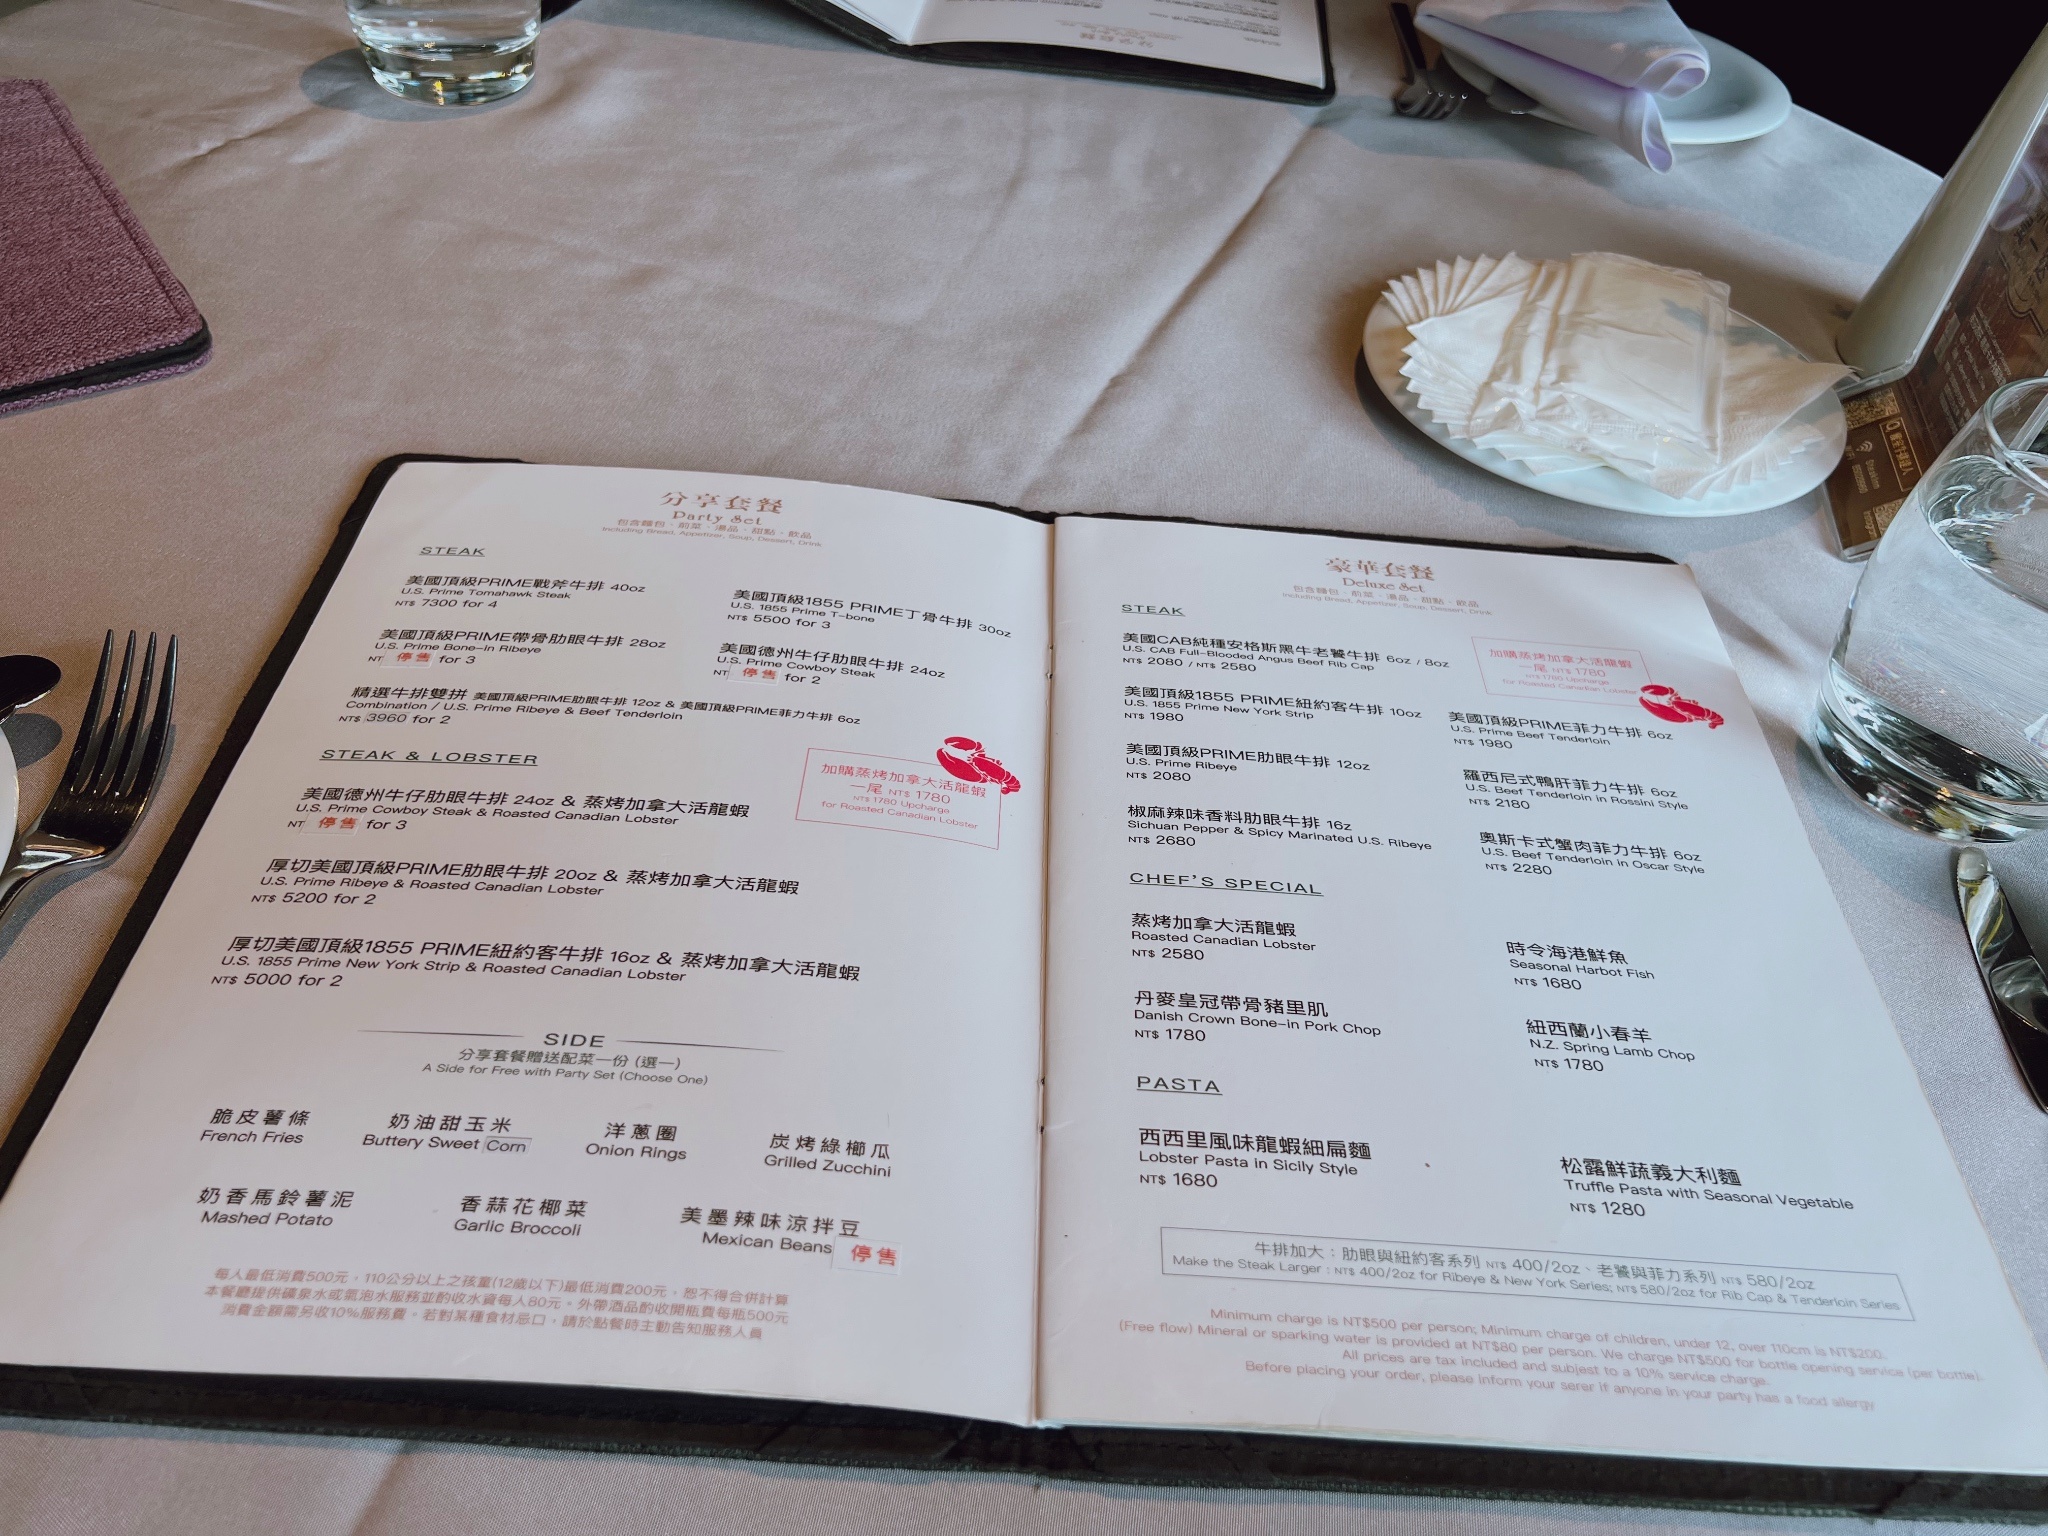 分享套餐
Party Set
包含麵包、前菜、湯品、甜點、飲品
Including Bread, Appetizer, Soup, Dessert, Drink
STEAK
美國頂級PRIME戰斧牛排 40oz
U.S. Prime Tomahawk Steak
NT$ 7300 for 4
美國頂級1855 PRIME丁骨牛排 30oz
U.S. 1855 Prime T-bone
NT$ 5500 for 3
美國頂級PRIME帶骨肋眼牛排 28oz
U.S. Prime Bone-in Ribeye
NT 停售 for 3
美國德州牛仔肋眼牛排 24oz
U.S. Prime Cowboy Steak
NT 停售 for 2
精選牛排雙拼 美國頂級PRIME肋眼牛排 12oz & 美國頂級PRIME菲力牛排 6oz
Combination / U.S. Prime Ribeye & Beef Tenderloin
NT$ 3960 for 2
STEAK & LOBSTER
加購蒸烤加拿大活龍蝦
一尾 NT$ 1780
NT$ 1780 Upcharge
for Roasted Canadian Lobster
美國德州牛仔肋眼牛排 24oz & 蒸烤加拿大活龍蝦
U.S. Prime Cowboy Steak & Roasted Canadian Lobster
NT 停售 for 3
厚切美國頂級PRIME肋眼牛排 20oz & 蒸烤加拿大活龍蝦
U.S. Prime Ribeye & Roasted Canadian Lobster
NT$ 5200 for 2
厚切美國頂級1855 PRIME紐約客牛排 16oz & 蒸烤加拿大活龍蝦
U.S. 1855 Prime New York Strip & Roasted Canadian Lobster
NT$ 5000 for 2
SIDE
分享套餐贈送配菜一份 (選一)
A Side for Free with Party Set (Choose One)
脆皮薯條
French Fries
奶油甜玉米
Buttery Sweet Corn
洋蔥圈
Onion Rings
炭烤綠櫛瓜
Grilled Zucchini
奶香馬鈴薯泥
Mashed Potato
香蒜花椰菜
Garlic Broccoli
美墨辣味涼拌豆
Mexican Beans 停售
每人最低消費500元，110公分以上之孩童(12歲以下)最低消費200元，恕不得合併計算
本餐廳提供礦泉水或氣泡水服務並酌收水資每人80元。外帶酒品酌收開瓶費每瓶500元
消費金額需另收10%服務費。若對某種食材忌口，請於點餐時主動告知服務人員
豪華套餐
Deluxe Set
包含麵包、前菜、湯品、甜點、飲品
Including Bread, Appetizer, Soup, Dessert, Drink
STEAK
美國CAB純種安格斯黑牛老饕牛排 6oz / 8oz
U.S. CAB Full-Blooded Angus Beef Rib Cap
NT$ 2080 / NT$ 2580
加購蒸烤加拿大活龍蝦
一尾 NT$ 1780
NT$ 1780 Upcharge
for Roasted Canadian Lobster
美國頂級1855 PRIME紐約客牛排 10oz
U.S. 1855 Prime New York Strip
NT$ 1980
美國頂級PRIME菲力牛排 6oz
U.S. Prime Beef Tenderloin
NT$ 1980
美國頂級PRIME肋眼牛排 12oz
U.S. Prime Ribeye
NT$ 2080
羅西尼式鴨肝菲力牛排 6oz
U.S. Beef Tenderloin in Rossini Style
NT$ 2180
椒麻辣味香料肋眼牛排 16z
Sichuan Pepper & Spicy Marinated U.S. Ribeye
NT$ 2680
奧斯卡式蟹肉菲力牛排 6oz
U.S. Beef Tenderloin in Oscar Style
NT$ 2280
CHEF'S SPECIAL
蒸烤加拿大活龍蝦
Roasted Canadian Lobster
NT$ 2580
時令海港鮮魚
Seasonal Harbot Fish
NT$ 1680
丹麥皇冠帶骨豬里肌
Danish Crown Bone-in Pork Chop
NT$ 1780
紐西蘭小春羊
N.Z. Spring Lamb Chop
NT$ 1780
PASTA
西西里風味龍蝦細扁麵
Lobster Pasta in Sicily Style
NT$ 1680
松露鮮蔬義大利麵
Truffle Pasta with Seasonal Vegetable
NT$ 1280
牛排加大：肋眼與紐約客系列 NT$ 400/2oz、老饕與菲力系列 NT$ 580/2oz
Make the Steak Larger : NT$ 400/2oz for Ribeye & New York Series; NT$ 580/2oz for Rib Cap & Tenderloin Series
Minimum charge is NT$500 per person; Minimum charge of children, under 12, over 110cm is NT$200.
(Free flow) Mineral or sparking water is provided at NT$80 per person. We charge NT$500 for bottle opening service (per bottle).
All prices are tax included and subjest to a 10% service charge.
Before placing your order, please inform your serer if anyone in your party has a food allergy